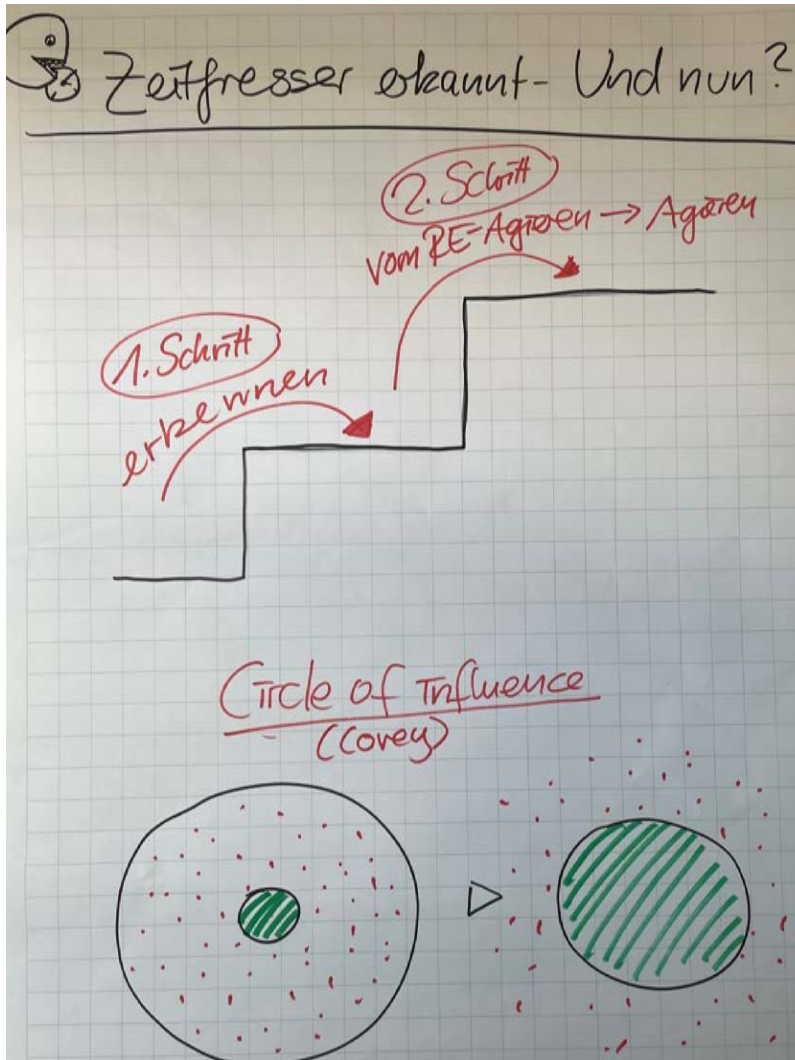 Zeitfresser erkannt - Und nun?
2. Schritt
vom RE-Agieren → Agieren
1. Schritt
erkennen
Circle of Influence
(Covey)